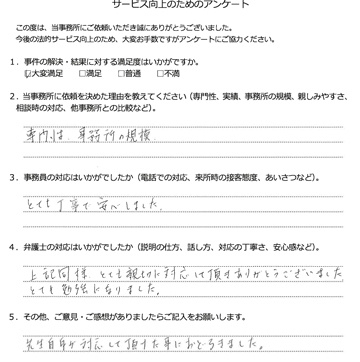 サービス向上のためのアンケート
この度は、当事務所にご依頼いただき誠にありがとうございました。
今後の法的サービス向上のため、大変お手数ですがアンケートにご協力ください。
1．事件の解決・結果に対する満足度はいかがですか。
☑大変満足 □満足 □普通 □不満
2．当事務所に依頼を決めた理由を教えてください（専門性、実績、事務所の規模、親しみやすさ、
相談時の対応、他事務所との比較など）。
専門性、事務所の規模
3．事務員の対応はいかがでしたか（電話での対応、来所時の接客態度、あいさつなど）。
とても丁寧で安心しました。
4．弁護士の対応はいかがでしたか（説明の仕方、話し方、対応の丁寧さ、安心感など）。
上記同様 とても親切に対応して頂きありがとうございました
とても勉強になりました。
5．その他、ご意見・ご感想がありましたらご記入をお願いします。
先生自身が対応して頂けた事におどろきました。